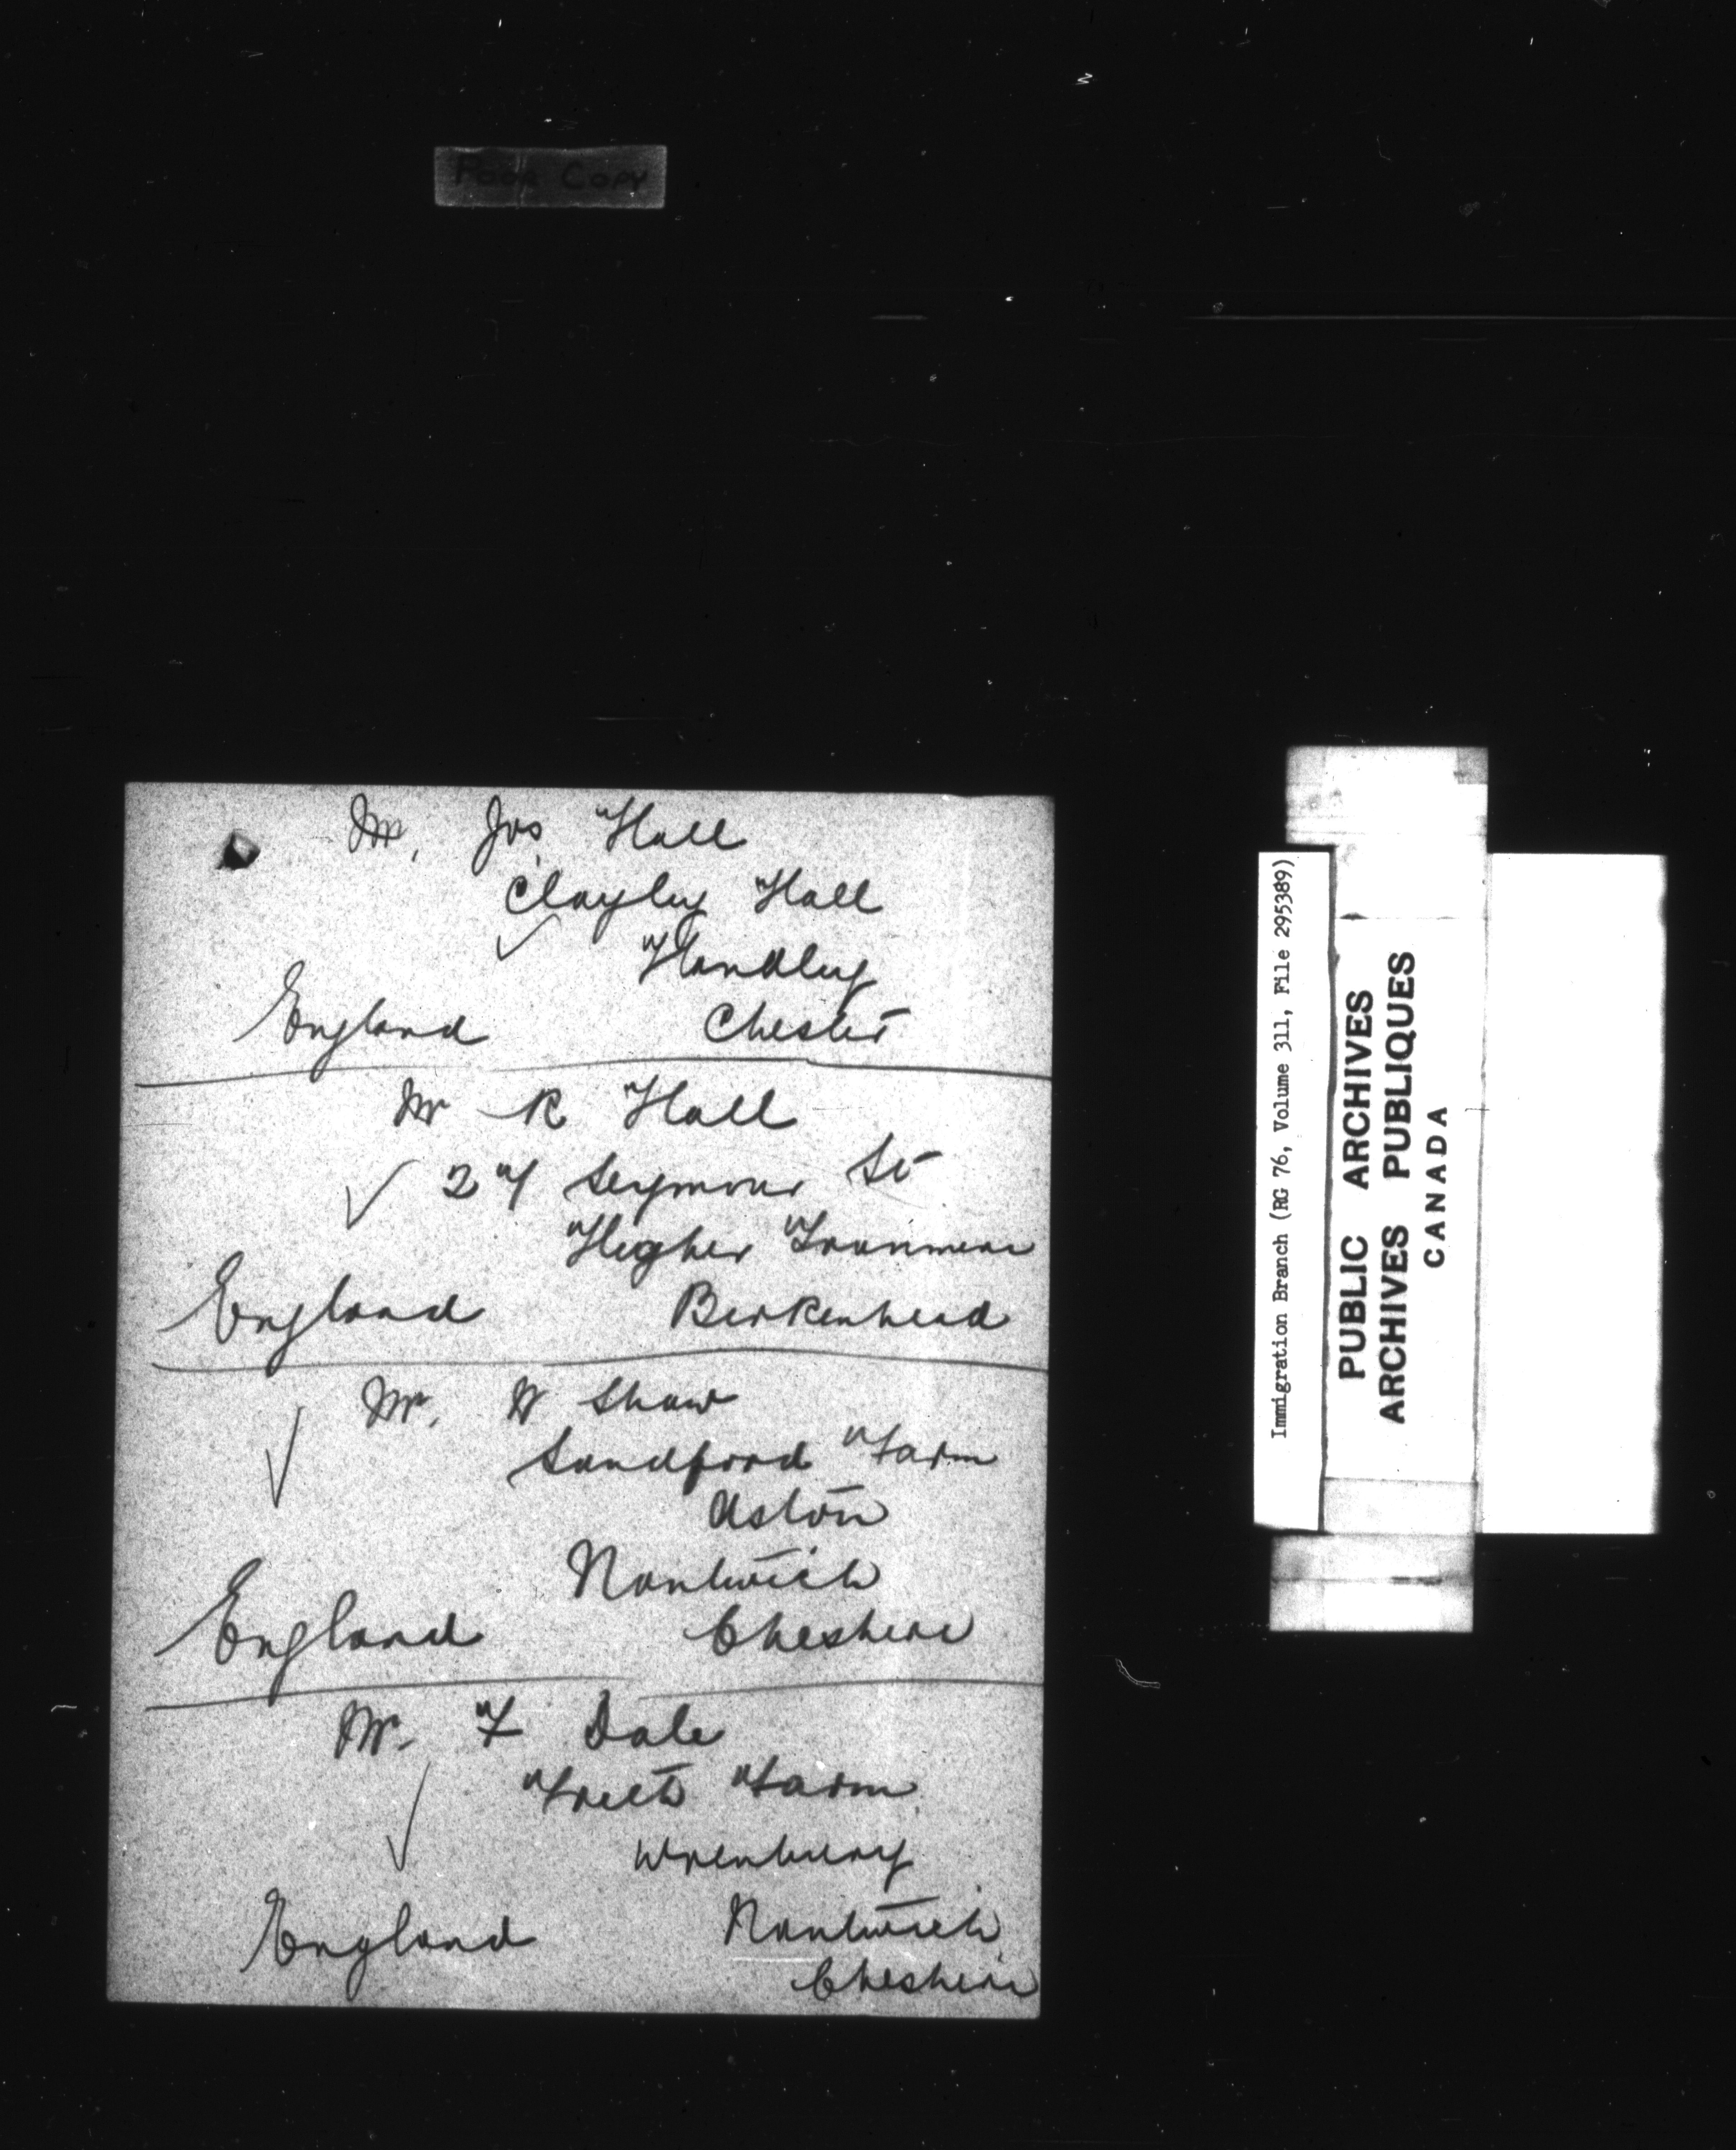 Poor Copy
Mr. Jos Hall
Clayley Hall
Handley
England Chester
Mr R Hall
27 Seymour St
Higher Tranmere
England Birkenhead
Mr. W Shaw
Sandford Farm
Aston
Nantwich
England Cheshire
Mr. F Dale
Frith Farm
Wrenbury
England Nantwich
Cheshire
Immigration Branch (RG 76, Volume 311, File 295389)
PUBLIC ARCHIVES
ARCHIVES PUBLIQUES
CANADA